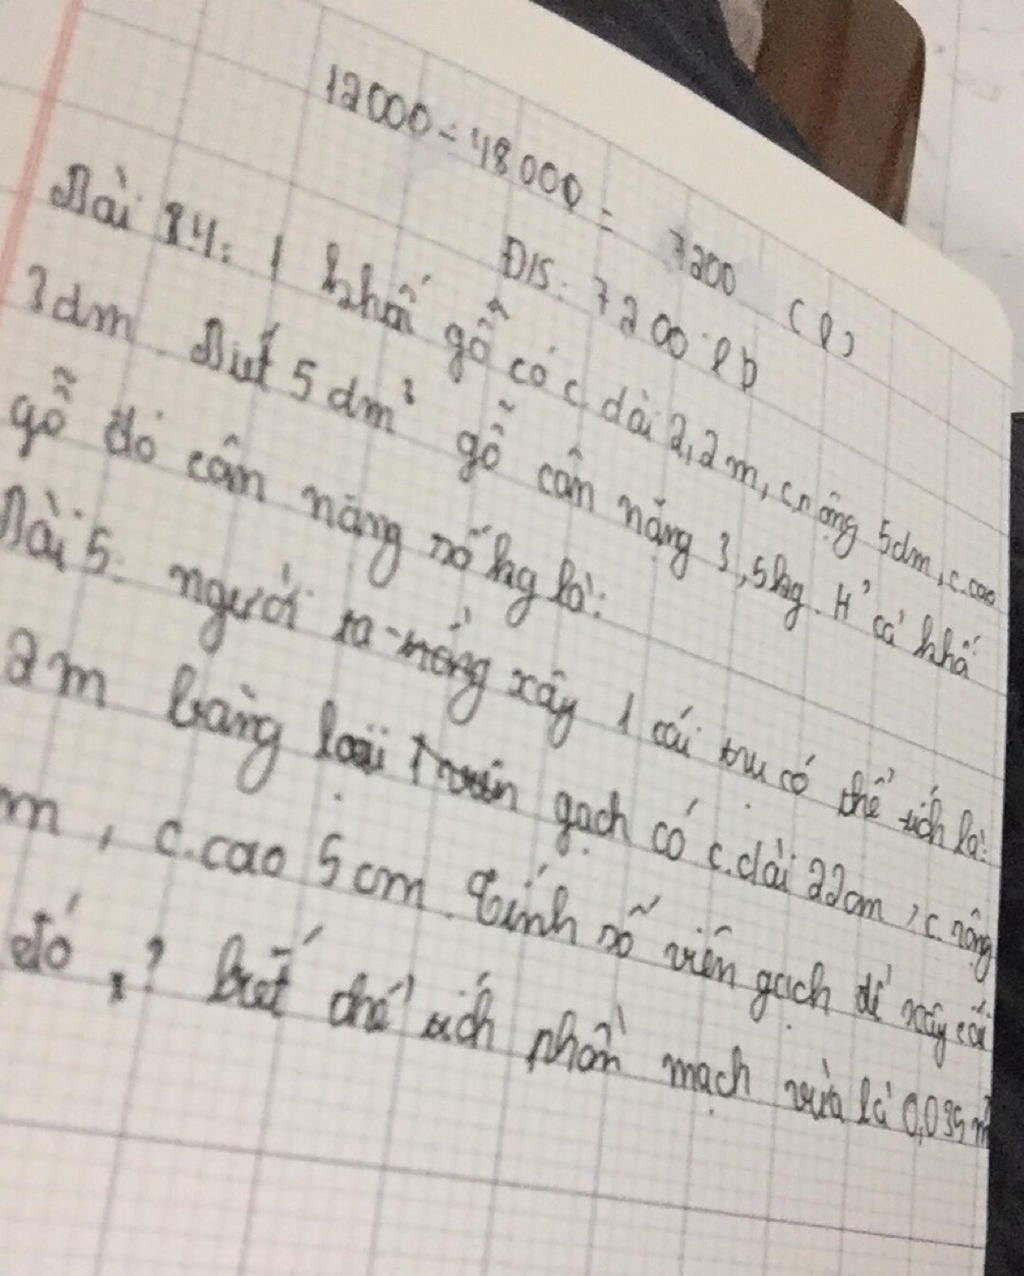 12000 - 48000 = 7200 (l)
Đ/S: 7200 l
Bài 4: 1 khối gỗ có c.dài 2,2m, c.rộng 5dm, c.cao
3dm. Biết 5dm³ gỗ cân nặng 3,5kg. H' cả khố
gỗ đó cân nặng số kg là:
Bài 5: người ta xây 1 cái trụ có thể tích là:
2m bằng loại gạch có c.dài 22cm, c.rộng
m, c.cao 5cm. Tính số viên gạch để xây cái
đó ? biết thể tích phần mạch vữa là